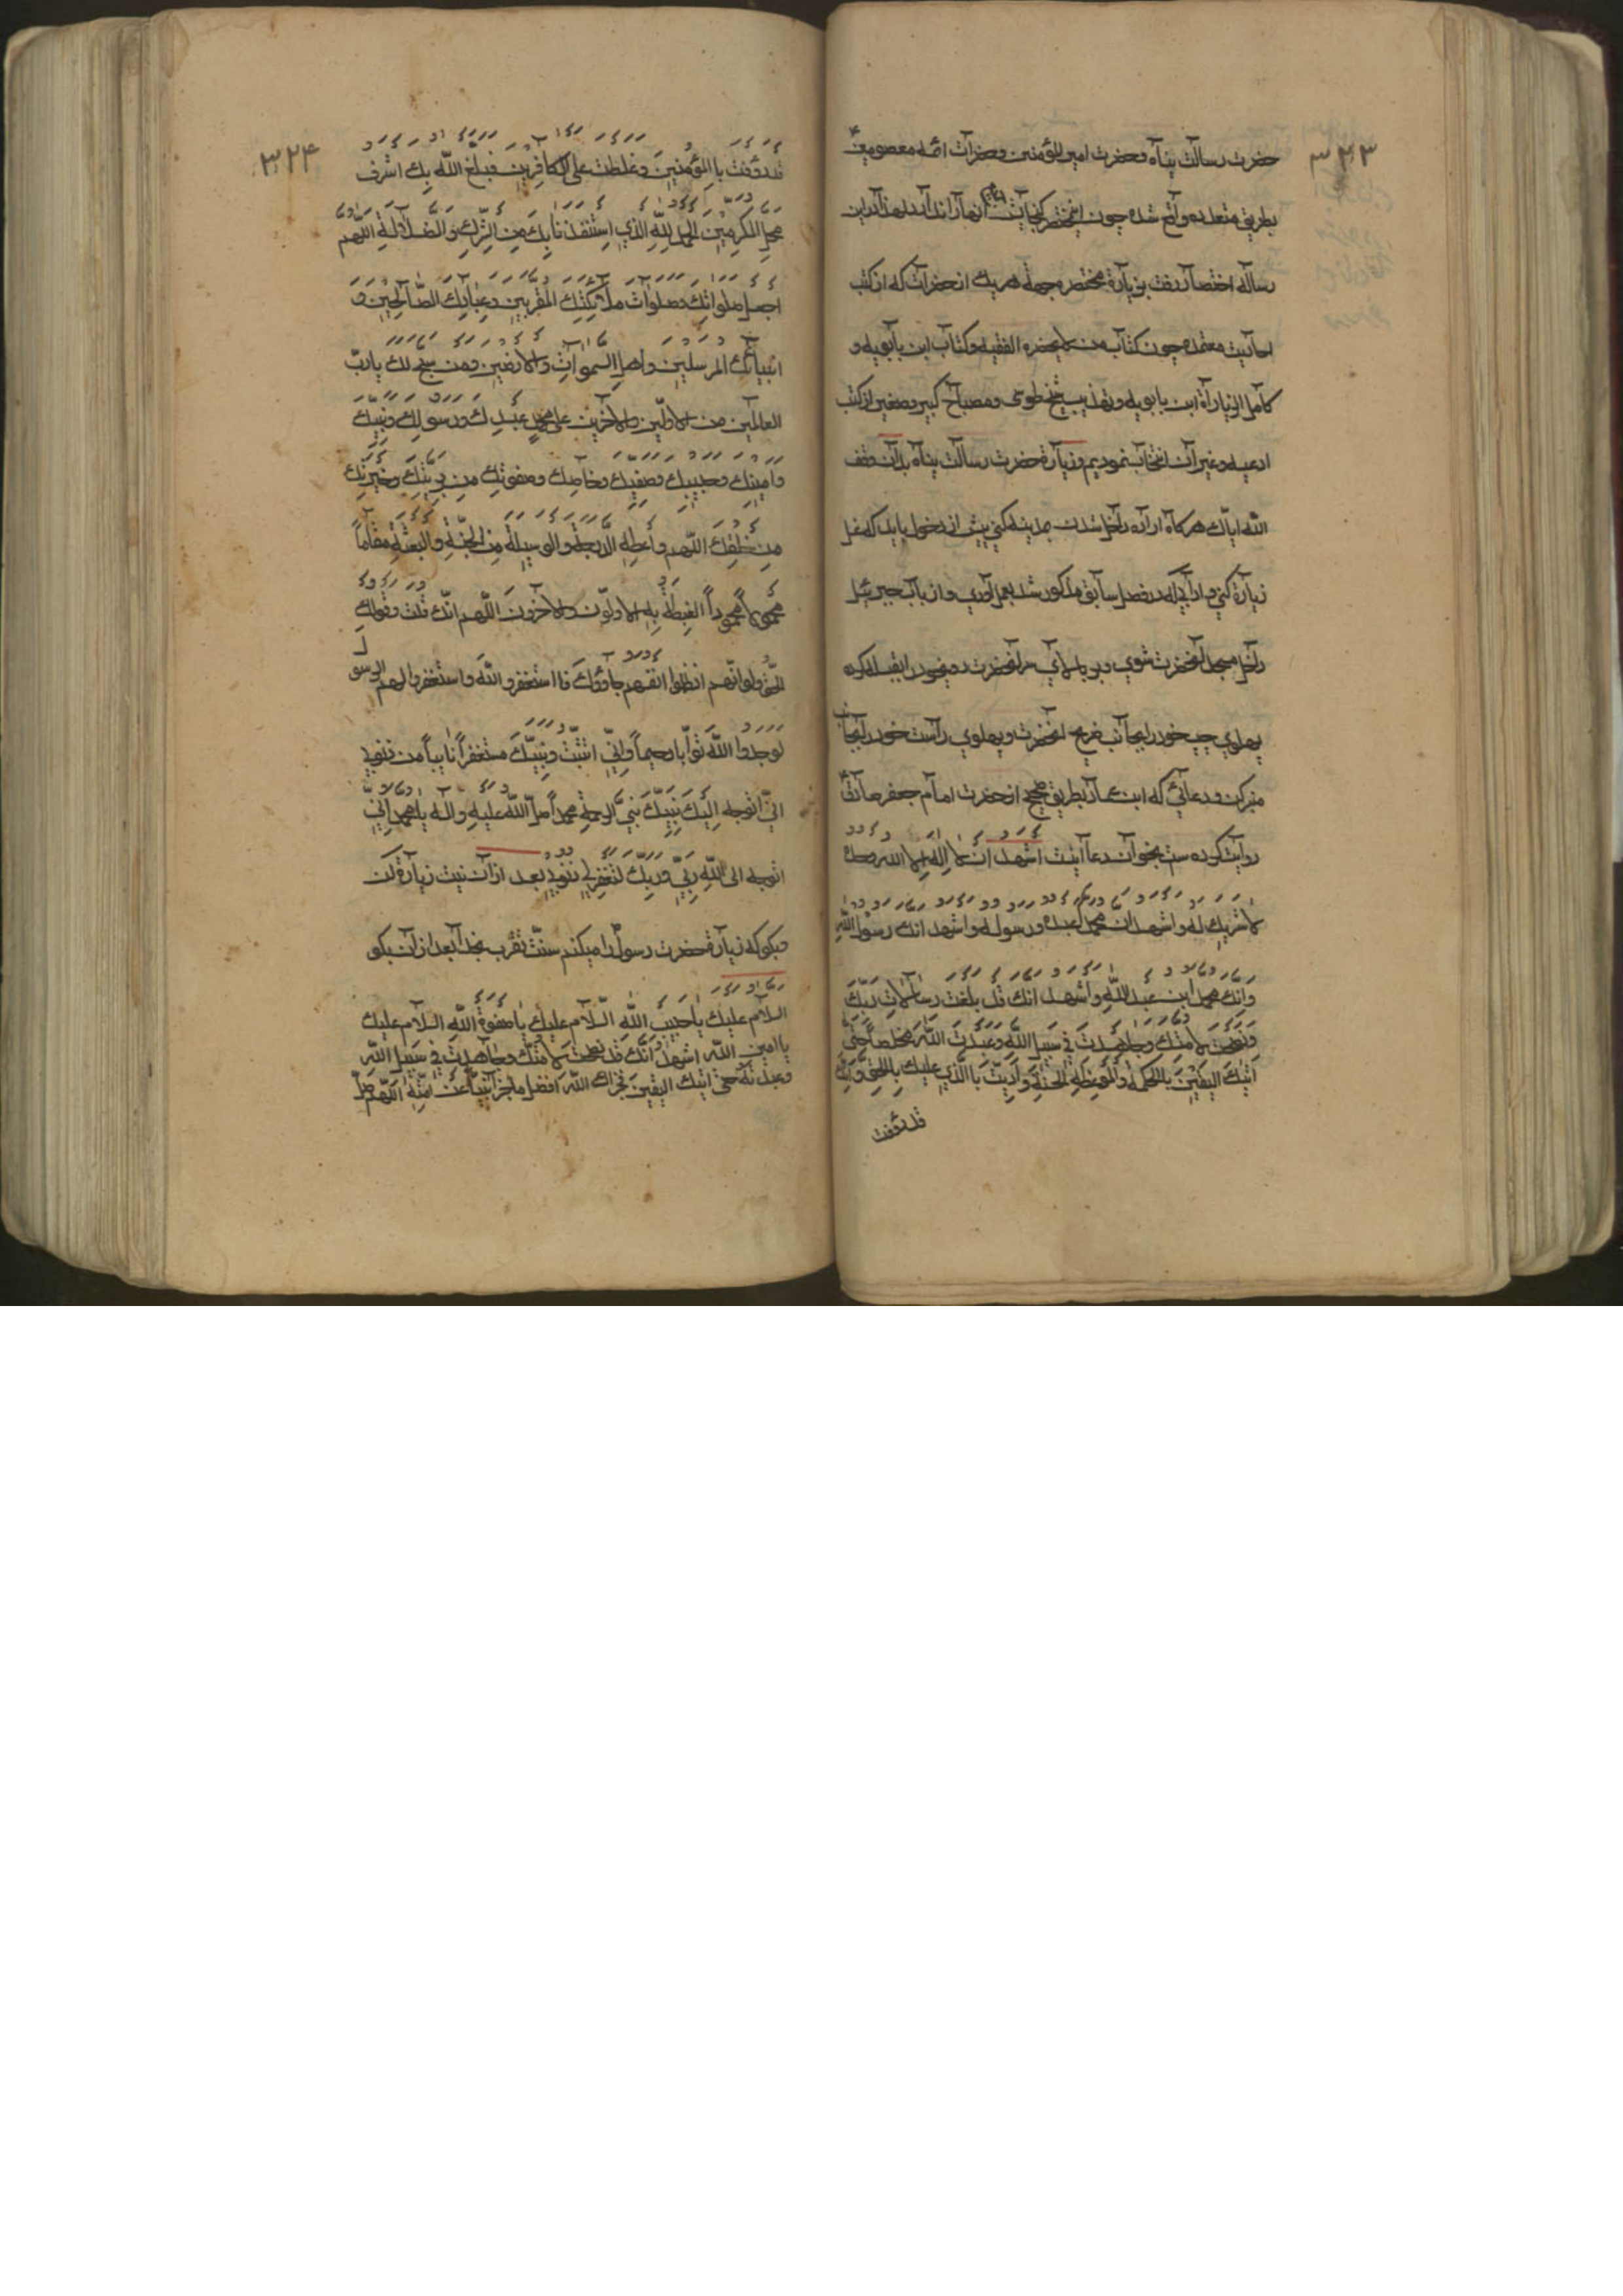 ۳۲۳
حضرت رسالت پناه و حضرت امیر المؤمنین و حضرات ائمه معصومین
بطریق متعدده واقع شده چون این مختصر گنجایش انها را ندارد لهذا درین
رساله اختصار رفت بزیارة مختصر جهة هر یک از حضرات که از کتب
احادیث معتمده چون کتاب من لا یحضره الفقیه و کتاب ابن بابویه و
کامل الزیارة ابن بابویه و تهذیب شیخ طوسی و مصباح کبیر و صغیر از کتب
ادعیه و غیر آن انتخاب نمودیم و زیارة حضرت رسالت پناه بدان وفقک
الله ایاک هرگاه اراده داخل شدن مدینه کنی پیش از دخول باید که غسل
زیارة کنی و ادابی که در فصل سابق مذکور شد بعمل آوری و از باب جبرئیل
داخل مسجد آنحضرت شوی و بر بالای سر آنحضرت رو بخود را بقبله کرده
پهلوی چپ خود را بجانب ضریح آنحضرت و پهلوی راست خود را بجانب
منبر کن و دعائی که ابن عمار بطریق صحیح از حضرت امام جعفر صادق
روایت کرده ست بخوان دعا اینت اشهد ان لا اله الا الله وحده
لا شریك له واشهد ان محمدا عبده ورسوله واشهد انك رسول الله
وَانّك محمد ابن عبد اللّهِ واشهد انك قد بلغت رسالات ربّكَ
ونصحت لامتك وجاهدتَ فی سبیل اللّه وعبدتَ اللّهَ مخلصاً حتی
اَتیٰكَ الیقینَ بالحکمة والموعظةِ الحسنةِ واَدیتَ باالّذی علیك بِالحقِ وانّك
قد رؤفت
۳۲۴
قد رؤفت باالمؤمنینَ وغلظت علی الکافرینَ فبلغ اللّه بِك اشرف
محل المکرمینَ الحمد لِلّهِ الذی استنقذ نابِكَ مِن الشّركِ والضلالةِ اللّهم
اجعل صلواتك وصلوات ملآئکتِك المقربین وعبادِك الصّالحین وَ
انبیائك المرسلین واهل السموات والارضین ومن سبح لك یارب
العالمین من الاولین والاخرین علی محمدٍ عبدِك ورسولِك ونبیّك
وامینِك وحبیبِك وصفیّك وخاصك وصفوتِك مِن بریتِك وخیرتِك
مِن خلقِك اللّهم واعطهِ الدّرجة والوسیلةَ مِن الجنّةِ والبعثهِ مقاماً
محموداً الغبطة بِهِ الاولون والاخرونَ اللّهم انّك قلت وقولك
الحق ولو انّهم اذ ظلموا انفسهم جاؤوك فا استغفرو اللّهَ واستغفر لهم الرسول
لوجدوا اللّهَ توّابا رحیماً وانّی اتیت ونبیّكَ مستغفراً تایباً من ذنوبی
انّی اتوجه اِلیكَ بنبِیّك نبی الرحمةِ محمدٍ صل اللّه علیهِ واله یامحمد انّی
اتوجه الی اللّهِ ربّی وربِّك لتغفِر لی ذنوبی بعد از آن نیت زیارة کن
وبکو که زیارة حضرت رسول را میکنم سنّت تقرب بخدا بعد از آن بکو
السلام علیك یا حبیب اللّهِ السّلام علیكَ یا صفوة اللّهِ السلام علیك
یاامین اللّه اشهد انّك قد نصحت لامتك وجاهدت فی سبیل اللّه
وعبدتَهُ حتی اتیك الیقینَ فجزاك اللّه افضل ماجزا نبیاً عن امّتِه اللّهم صلّ